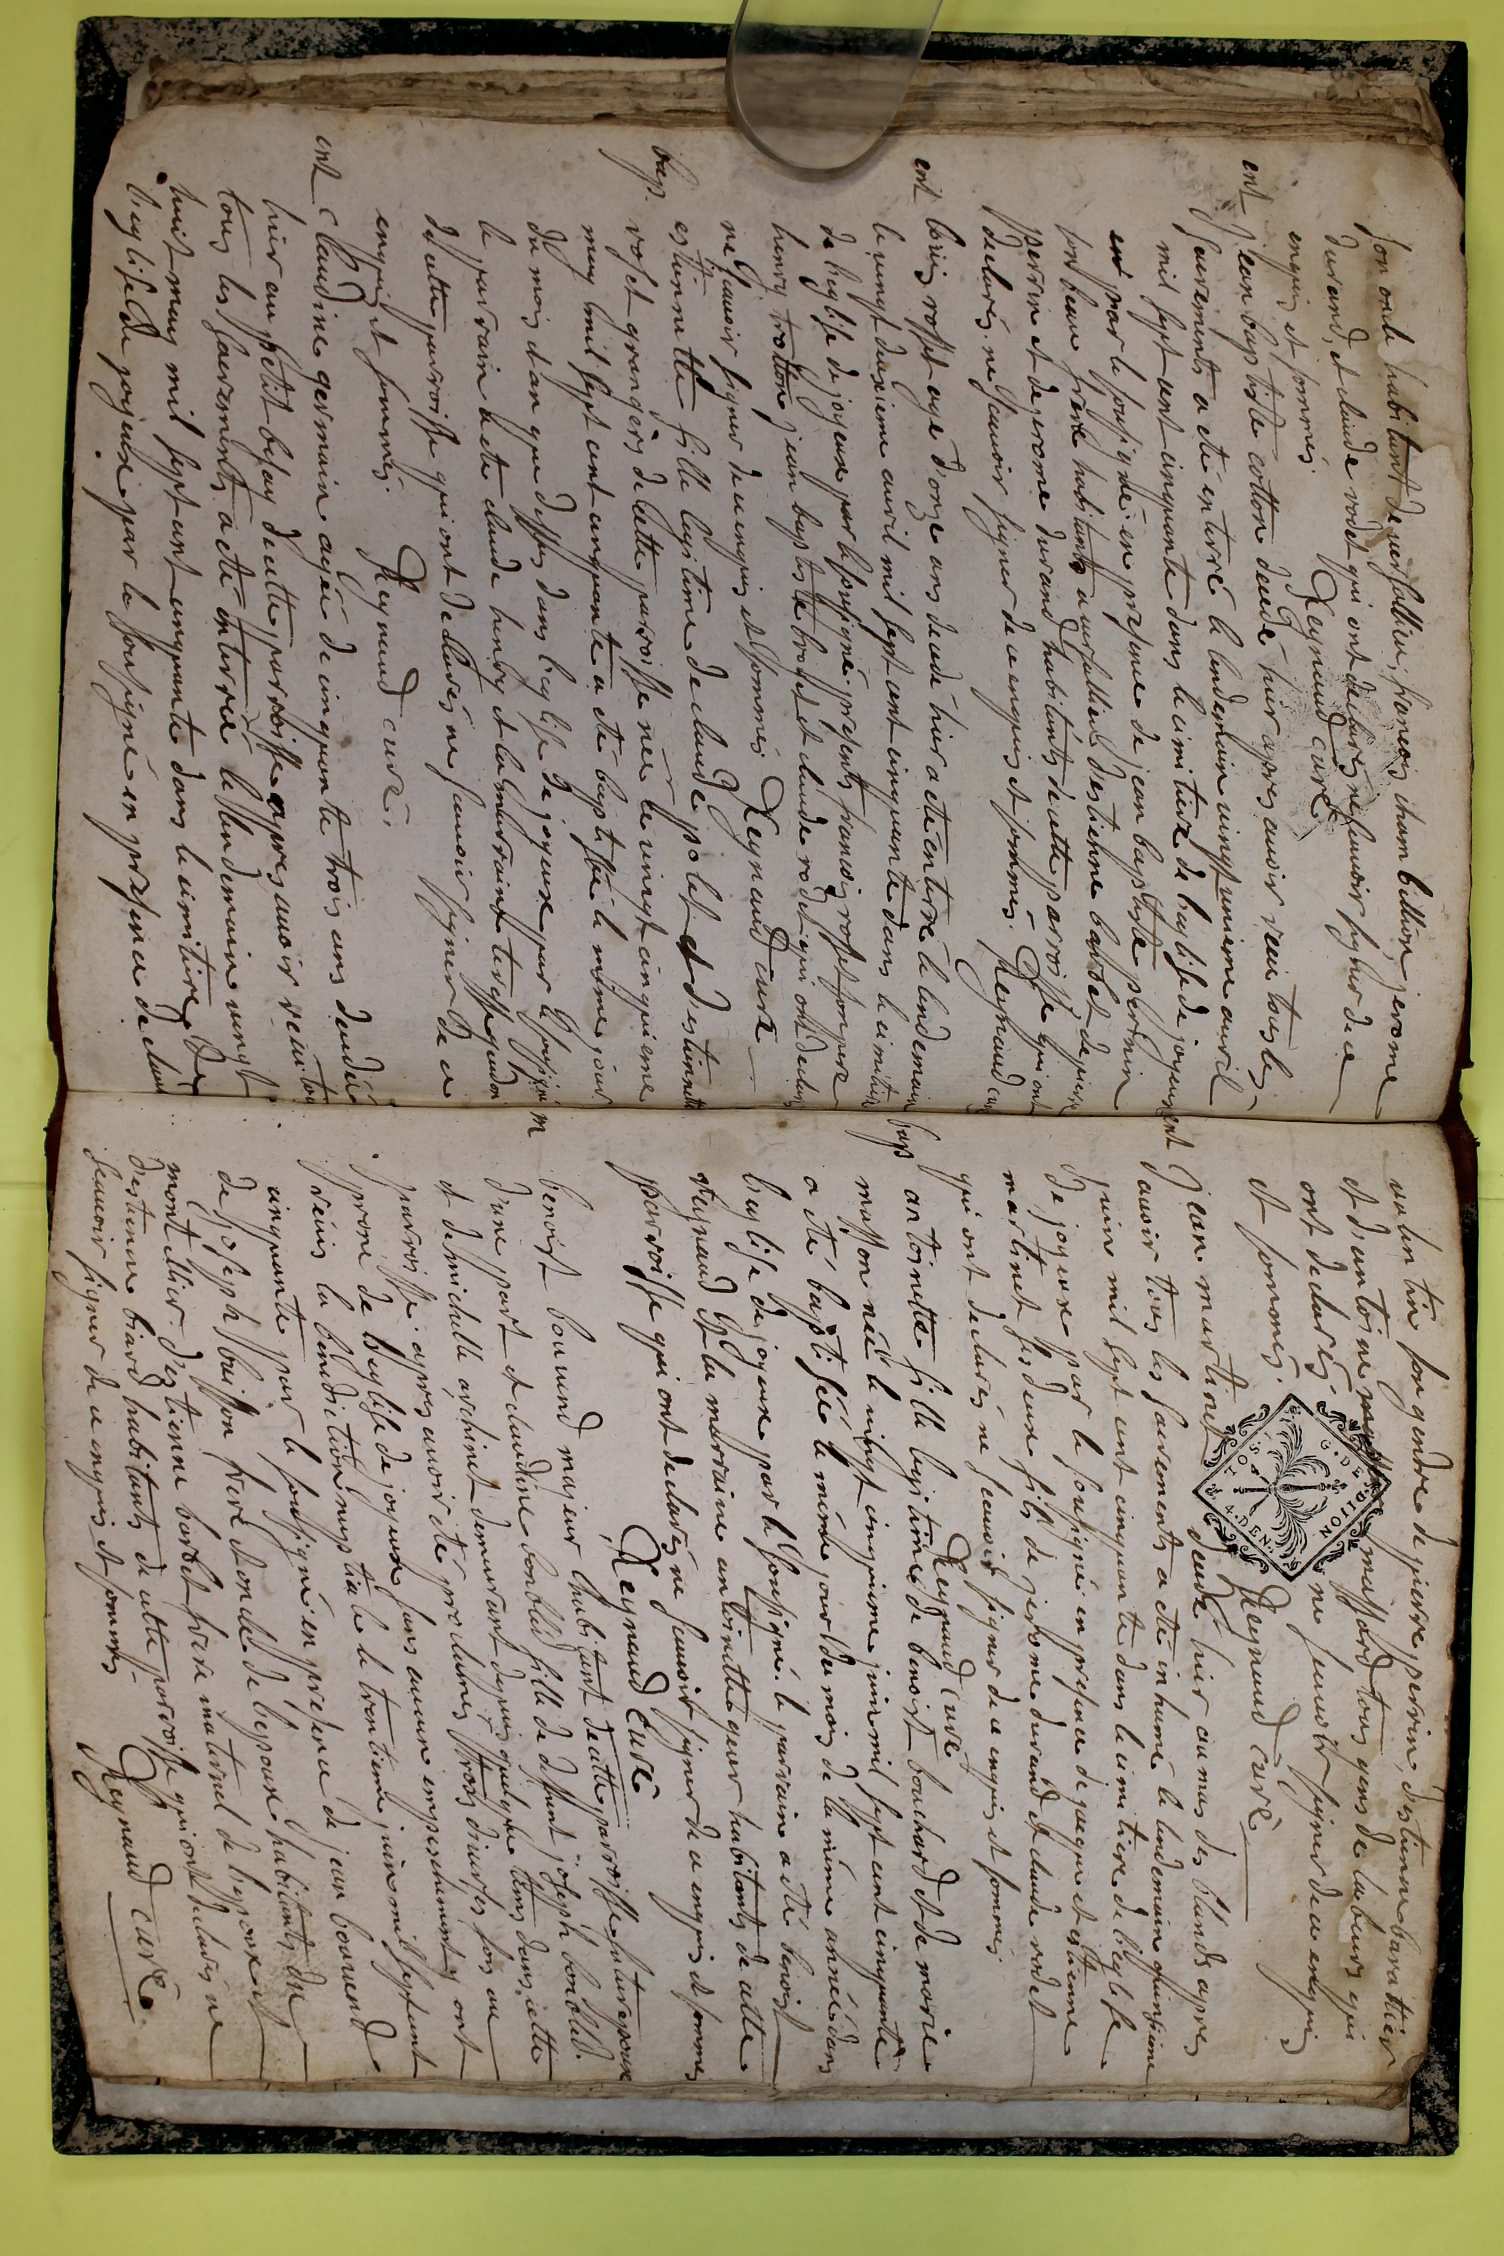 son oncle habitant de versallieu, francois chambillion, jerome
durand, et claude rodet qui ont declarés ne scavoir signer de ce
enquis et sommés. Reynaud curé
ent jean baptiste cotton decedé hier apres avoir receu tous les
sacrements a été enterré le lendemain vingt unieme avril
mil sept cent cinquante dans le cimitiere de l'eglise de joyeux
par le soussigné en presence de jean baptiste perrin
son beau frere habitants a versallieu d'estienne barbet de pierre
perrin et de jerome durand habitants de cette paroisse qui ont
declarés ne scavoir signer de ce enquis et sommés. Reynaud curé
ent rosset agé d'onze ans decedé hier a été enterré le lendemain
le vingt deuxieme avril mil sept cent cinquante dans le cimitiere
de l'eglise de joyeux par le soussigné presents francois rosset son pere
henry trotton jean baptiste et claude rodet qui ont declarés
ne scavoir signer de ce enquis et sommés Reynaud curé
bap. estiennette fille legitime de claude polet et d'estiennette
roset grangers de cette paroisse née le vingt cinquieme
may mil sept cent cinquante a été baptisée le meme jour
du mois et an que dessus dans l'eglise de joyeux par le soussigné
le parrain a été claude henry et la marraine
de cette paroisse qui ont declarés ne scavoir signer de ce
enquis et sommés. Reynaud curé.
ent claudine germain agée de cinquante trois ans decedée
hier au petit besay de cette parroisse apres avoir receu
tous les sacrements a été enterrée le lendemain vingt
huit may mil sept cent cinquante dans le cimitiere de
l'eglise de joyeux par le soussigné en presence de claude
valentin son gendre de pierre perrin, d'estienne barattier
et d'antoine massard tous gens de labeurs qui
ont declarés ne scavoir signer de ce enquis
et sommés. Reynaud curé
G. DE DIJON
4. DEN.
ent jean martinet decedé hier au mas des blancs apres
avoir tous les sacrements a été inhumé le lendemain quinsieme
juin mil sept cent cinquante dans le cimitiere de l'eglise
de joyeux par le soussigné en presence de jacque et estienne
martinet ses deux fils de jerome durand et claude rodet
qui ont declarés ne scavoir signer de ce enquis et sommés
Reynaud curé
bap antoinette fille legitime de benoist bouchard et de marie
masson née le vingt cinquieme juin mil sept cent cinquante
a été baptisée le même jour du mois de la même année dans
l'eglise de joyeux par le soussigné. le parrain a été benoist
reynaud et la marraine antoinette habitants de cette
parroisse qui ont declarés ne scavoir signer de ce enquis et sommés
Reynaud curé
m benoist bouvend majeur habitant de cette parroisse
d'une part et claudine bonblad fille de deffunt joseph bonblad
et de michelle archinet demeurant depuis quelque tems dans cette
parroisse apres avoir été proclamés trois diverses fois au
prone de l'eglise de joyeux sans aucun empeschement ont
receus la benediction nuptiale le trentieme juin mil sept cent
cinquante par le soussigné en presence de jean bouvend
de joseph buisson frere et oncle de l'epoux habitants de
montellier d'estienne barbet frere maternel de l'epoux et
d'estienne biard habitants de cette parroisse qui ont declarés ne
scavoir signer de ce enquis et sommés Reynaud curé.